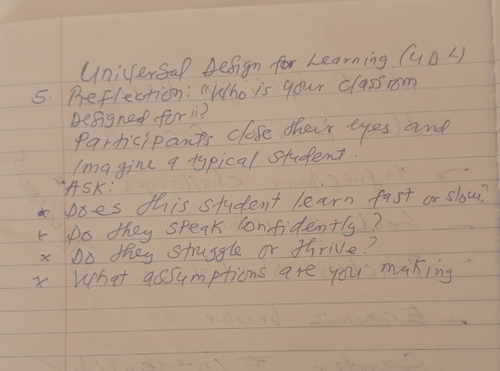 Universal Design for Learning (UDL)
5. Reflection: "Who is your classrom
Designed for"?
Participants close their eyes and
imagine a typical student.
ASK:
* Does this student learn fast or slow?
x Do they speak confidently?
x Do they struggle or thrive?
x What assumptions are you making